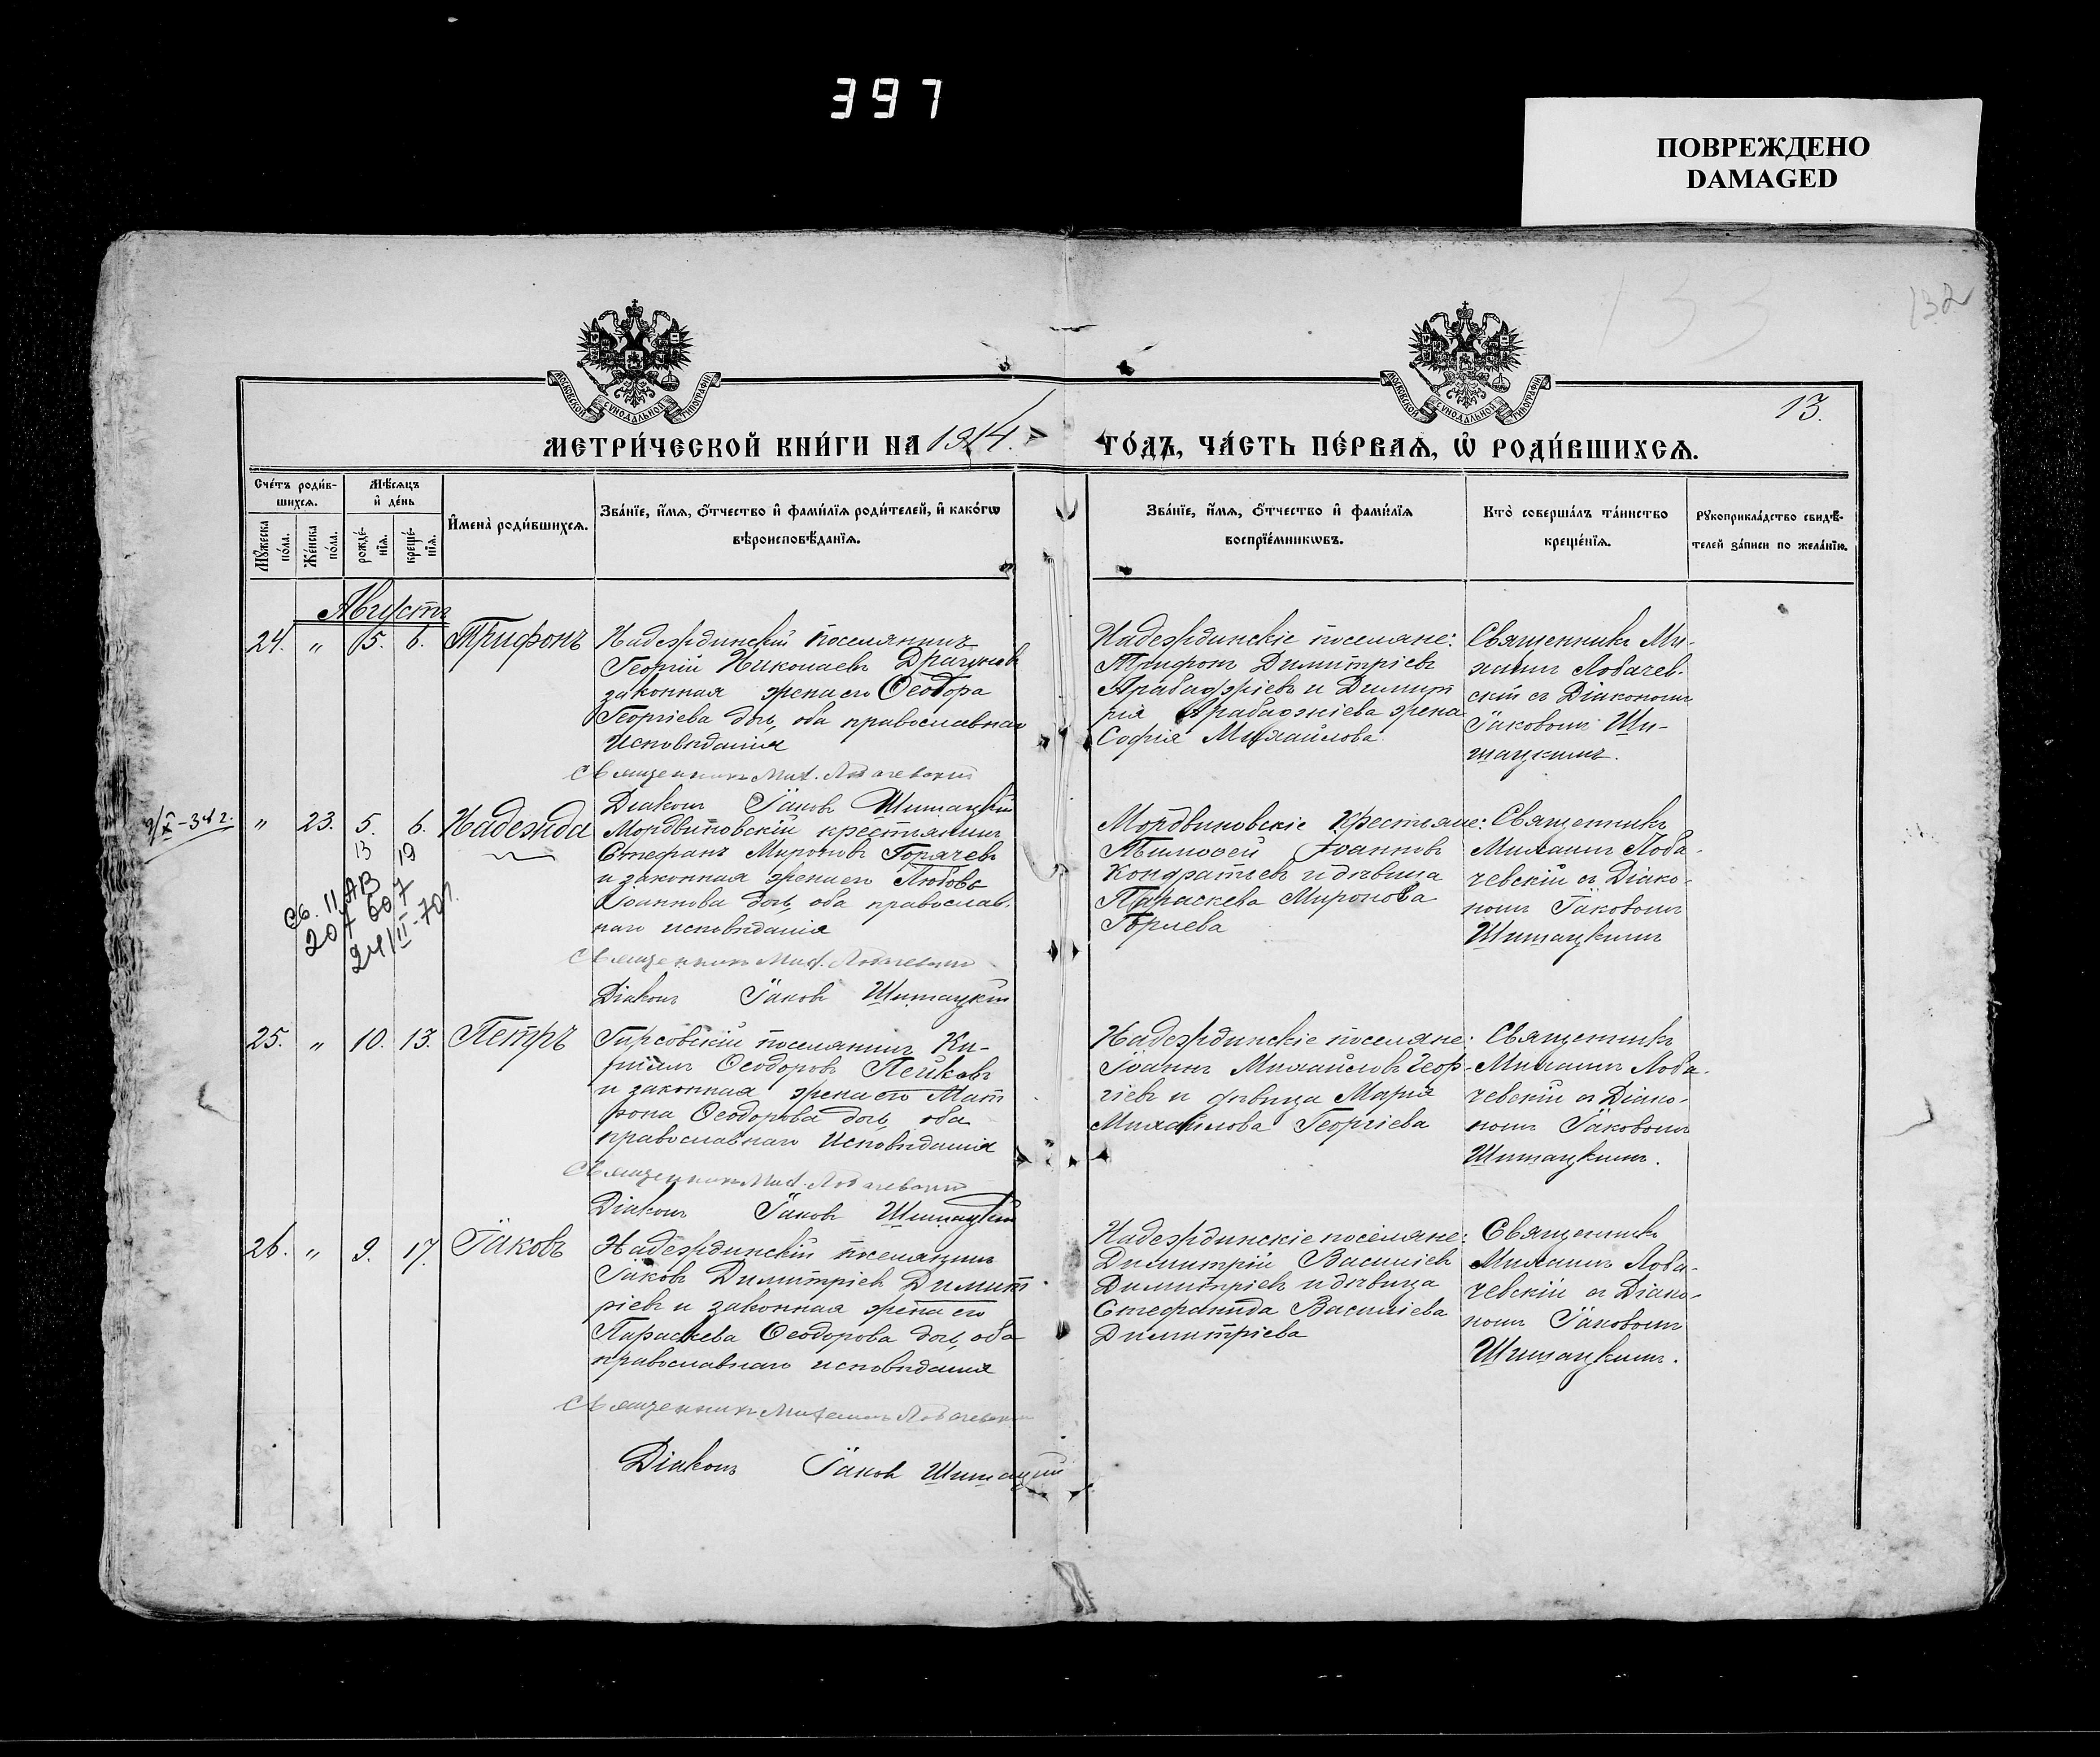 397
ПОВРЕЖДЕНО
DAMAGED
132
133
МОСКОВСКОЙ СѴНОДАЛЬНОЙ ТИПОГРАФІИ
МОСКОВСКОЙ СѴНОДАЛЬНОЙ ТИПОГРАФІИ
13.
МЕТРИ́ЧЕСКОЙ КНИ́ГИ НА 1914. ГО́ДЪ, ЧА́СТЬ ПЕ́РВАѦ, Ѡ҆ РОДИ́ВШИХСѦ.
Сче́тъ роди́в-
шихсѧ.
Мѣ́сѧцъ
и҆ де́нь
Мꙋ́жеска
по́ла.
Же́нска
по́ла.
рожде́-
нїѧ.
креще́-
нїѧ.
И҆мена̀ роди́вшихсѧ.
Зва́нїе, и҆́мѧ, ѻ҆́тчество и҆ фами́лїѧ роди́телей, и҆ како́гѡ
вѣроисповѣ́данїѧ.
Зва́нїе, и҆́мѧ, ѻ҆́тчество и҆ фами́лїѧ
воспрїе́мникѡвъ.
Кто̀ соверша́лъ та́инство
креще́нїѧ.
Рꙋкоприкла́дство свидѣ́-
телей за́писи по жела́нїю.
Августъ
24. " 5. 6. Трифонъ
Надеждинскій поселянинъ
Георгій Николаевъ Драгуновъ
законная жена его Ѳеодора
Георгіева дочь, оба православнаго
исповѣданія
Священникъ Мих. Лобачевскій
Діаконъ Іаковъ Шишацкій
Надеждинскіе поселяне:
Трифонъ Димитріевъ
Арабаджіевъ и Димит
рія Арабаджіева жена
Софія Михайлова
Священникъ Ми-
хаилъ Лобачев-
скій съ Діакономъ
Іаковомъ Ши-
шацкимъ.
9/X-34 г.
" 23. 5. 6. Надежда
13 19
Св. II АВ
207 607
24/III-70 г.
Мордвиновскій крестьянинъ
Стефанъ Мироновъ Горячевъ
и законная жена его Любовь
Іоаннова дочь, оба православ.
наго исповѣданія
Священникъ Мих. Лобачевскій
Діаконъ Іаковъ Шишацкій
Мордвиновскіе крестьяне:
Тимоѳей Іоанновъ
Кондратьевъ и дѣвица
Параскева Миронова
Священникъ
Михаилъ Лоба-
чевскій съ Діако-
номъ Іаковомъ
Шишацкимъ
25. " 10. 13. Петръ
Гирсовскій поселянинъ Ки-
риллъ Ѳеодоровъ Пейковъ
и законная жена его Мат
рона Ѳеодорова дочь, оба
православнаго исповѣданія
Священникъ Мих. Лобачевскій
Діаконъ Іаковъ Шишацкій
Надеждинскіе поселяне:
Іоаннъ Михайловъ Геор-
гіевъ и дѣвица Марія
Михайлова Георгіева
Священникъ
Михаилъ Лоба-
чевскій съ Діако-
номъ Іаковомъ
Шишацкимъ.
26. " 9. 17. Іаковъ
Надеждинскій поселянинъ
Іаковъ Димитріевъ Димит
ріевъ и законная жена его
Параскева Ѳеодорова дочь, оба
православнаго исповѣданія
Священникъ Михаилъ Лобачевскій
Діаконъ Іаковъ Шишацкій
Надеждинскіе поселяне:
Димитрій Василіевъ
Димитріевъ и дѣвица
Стефанида Василіева
Димитріева
Священникъ
Михаилъ Лоба-
чевскій съ Діако-
номъ Іаковомъ
Шишацкимъ.